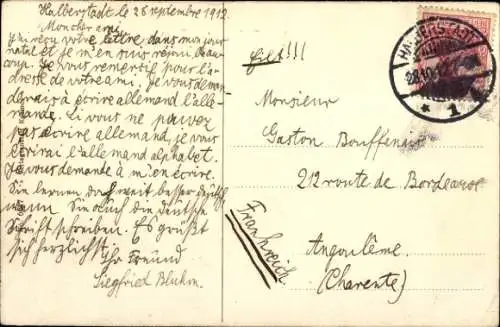 Halberstadt le 28 septembre 1912.
Mon cher ami
J'ai reçu votre lettre dans mon jour
natal et je m'en suis réjoui Beau
coup. Je vous remertie pour l'a-
dresse de votre ami. Je vous deman
derais à écrire allemand l'alle-
mande. Si vous ne pouvez
pas écrire allemand, je vous
écrirai l'allemand alphabet.
Je vous demande à m'en écrire.
Sie lernen doch weit besser deutsch
wenn Sie auch die deutsche
Schrift schreiben. Es grüßt
sich herzlichst
Ihr Freund
Siegfried Bluhm.
HALBERSTADT
28.10.12
* 1
Monsieur
Gaston Bouffenier
212 route de Bordeaux
Angoulême
(Charente)
Frankreich